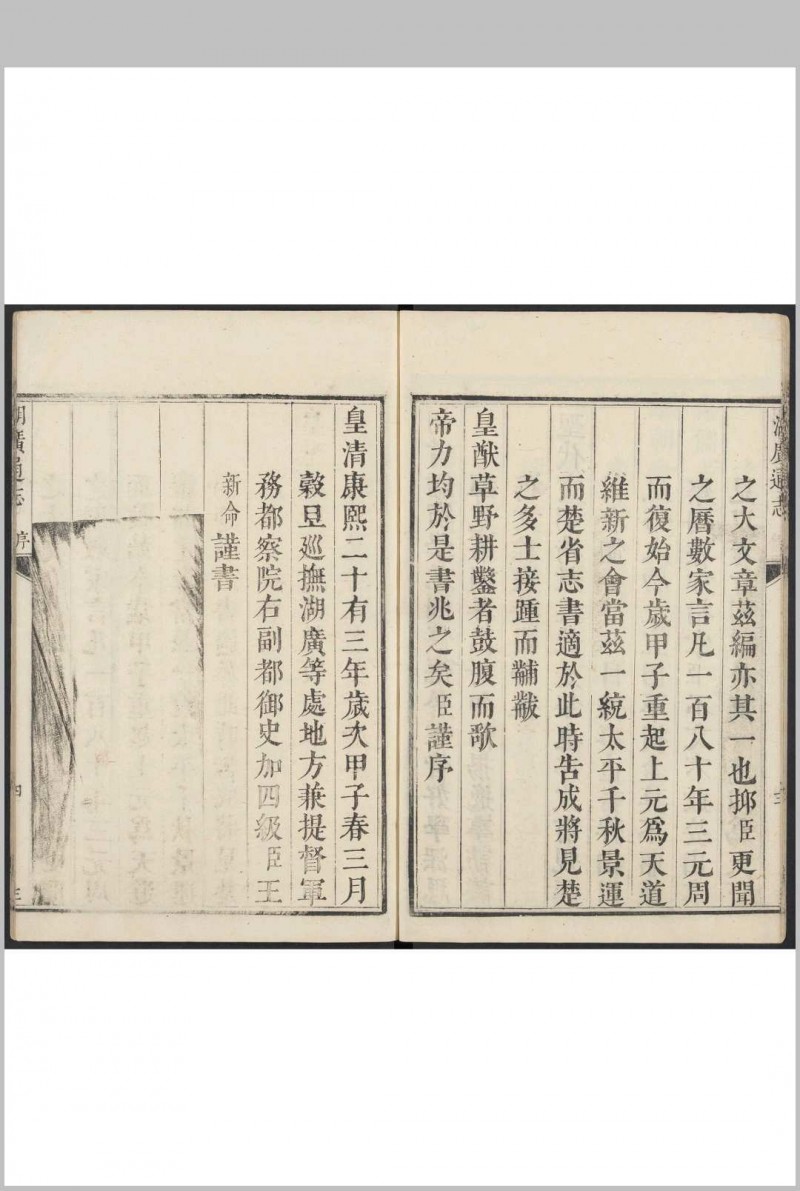 湖廣通志
三
之大文章茲編亦其一也抑臣更聞
之曆數家言凡一百八十年三元周
而復始今歲甲子重起上元爲天道
維新之會當茲一統太平千秋景運
而楚省志書適於此時告成將見楚
之多士接踵而黼黻
皇猷草野耕鑿者鼓腹而歌
帝力均於是書兆之矣臣謹序
皇清康熙二十有三年歲次甲子春三月
穀旦巡撫湖廣等處地方兼提督軍
務都察院右副都御史加四級臣王
新命謹書
湖廣通志
序
四
三